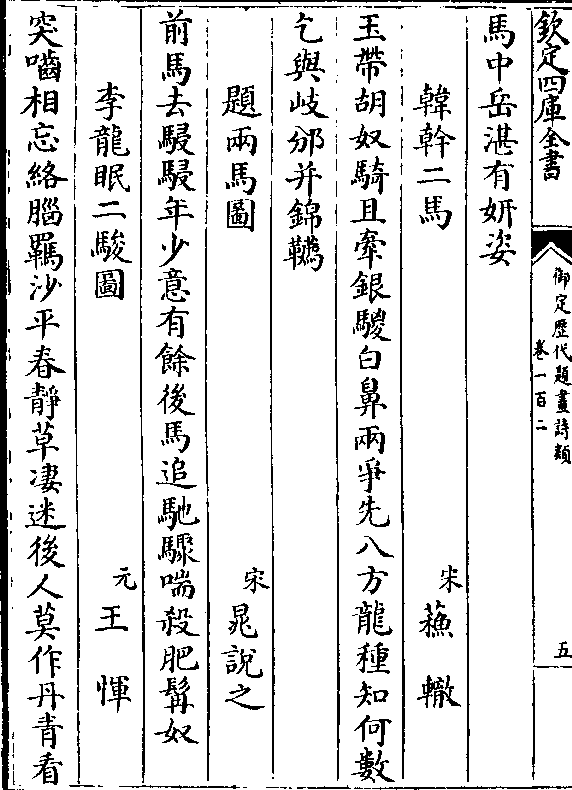 欽定四庫全書
御定歴代題畫詩類
卷一百二
五
馬中岳湛有妍姿
韓幹二馬
宋
蘇轍
玉帶胡奴騎且牽銀騣白鼻兩爭先八方龍種知何數
乞與岐邠并錦韉
題兩馬圖
宋
晁說之
前馬去駸駸年少意有餘後馬追馳驟喘殺肥髯奴
李龍眠二駿圖
元
王惲
突嚙相忘絡腦羈沙平春靜草凄迷後人莫作丹青看